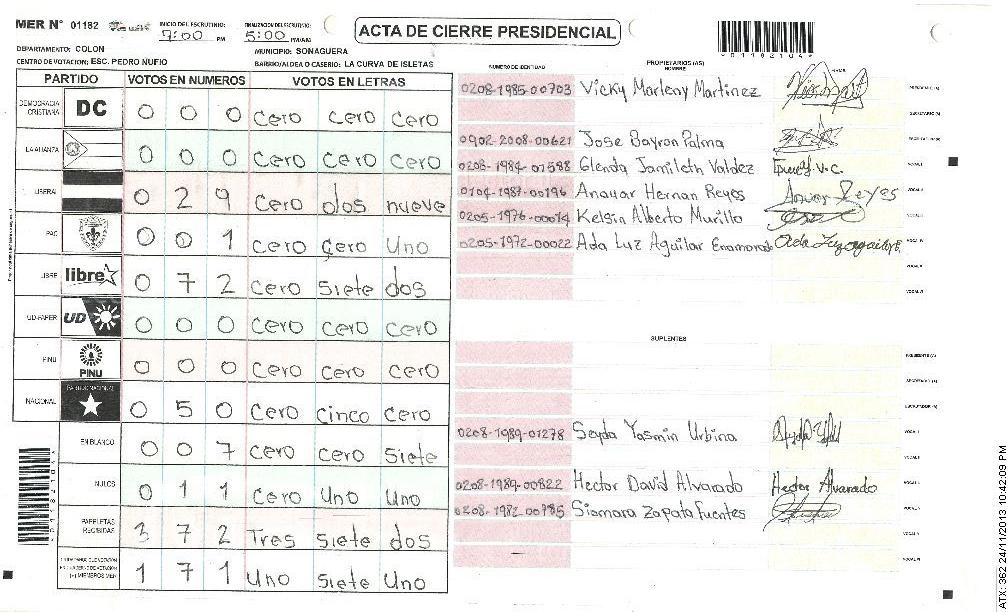 MER N° 01182
INICIO DEL ESCRUTINIO:
7:00 PM
FINALIZACION DEL ESCRUTINIO:
5:00 PM/AM
ACTA DE CIERRE PRESIDENCIAL
DEPARTAMENTO: COLON
MUNICIPIO: SONAGUERA
CENTRO DE VOTACION: ESC. PEDRO NUFIO
BARRIO/ALDEA O CASERIO: LA CURVA DE ISLETAS
PARTIDO VOTOS EN NUMEROS VOTOS EN LETRAS
DEMOCRACIA CRISTIANA DC 0 0 0 cero cero cero
LA ALIANZA 0 0 0 cero cero cero
LIBERAL 0 2 9 cero dos nueve
PAC 0 0 1 cero cero Uno
LIBRE libre 0 7 2 cero siete dos
UD-FAPER UD 0 0 0 cero cero cero
PINU PINU 0 0 0 cero cero cero
NACIONAL PARTIDO NACIONAL 0 5 0 cero cinco cero
EN BLANCO 0 0 7 cero cero siete
NULOS 0 1 1 cero Uno Uno
PAPELETAS RECIBIDAS 3 7 2 Tres siete dos
1 7 1 Uno siete Uno
NUMERO DE IDENTIDAD
PROPIETARIOS (AS)
NOMBRE
FIRMA
0208-1985-00703 Vicky Marleny Martinez
0902-2008-00621 Jose Bayron Palma
0208-1984-01588 Glenda Jamileth Valdez
0104-1987-00196 Anauar Hernan Reyes
0205-1976-00014 Kelsin Alberto Murillo
0205-1972-00022 Ada Luz Aguilar Enamorado
SUPLENTES
0208-1989-01278 Seyda Yasmin Urbina
0208-1989-00822 Hector David Alvarado Hector Alvarado
0208-1982-00785 Siomara Zapata Fuentes
ATX: 362 24/11/2013 10:42:09 PM